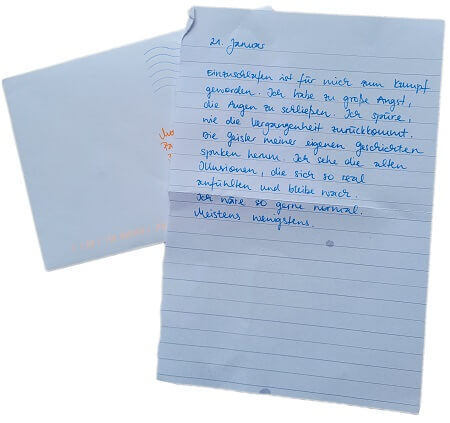 21. Januar
Einzuschlafen ist für mich zum Kampf
geworden. Ich habe zu große Angst,
die Augen zu schließen. Ich spüre,
wie die Vergangenheit zurückkommt.
Die Geister meiner eigenen Geschichten
spuken herum. Ich sehe die alten
Illusionen, die sich so real
anfühlten und bleibe wach.
Ich wäre so gerne normal.
Meistens wenigstens.